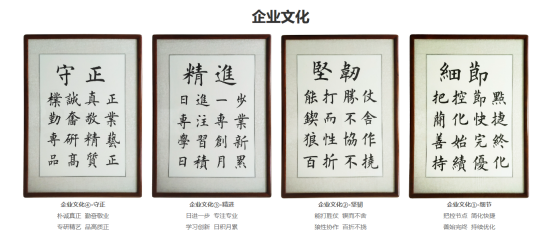 企业文化
守正
樸誠真正
勤奮敬業
專研精藝
品高質正
精進
日進一步
專注專業
學習創新
日積月累
堅韌
能打勝仗
鍥而不舍
狼性協作
百折不撓
細節
把控節點
簡化快捷
善始完終
持續優化
企业文化④-守正
朴诚真正 勤奋敬业
专研精艺 品高质正
企业文化③-精进
日进一步 专注专业
学习创新 日积月累
企业文化②-坚韧
能打胜仗 锲而不舍
狼性协作 百折不挠
企业文化①-细节
把控节点 简化快捷
善始完终 持续优化